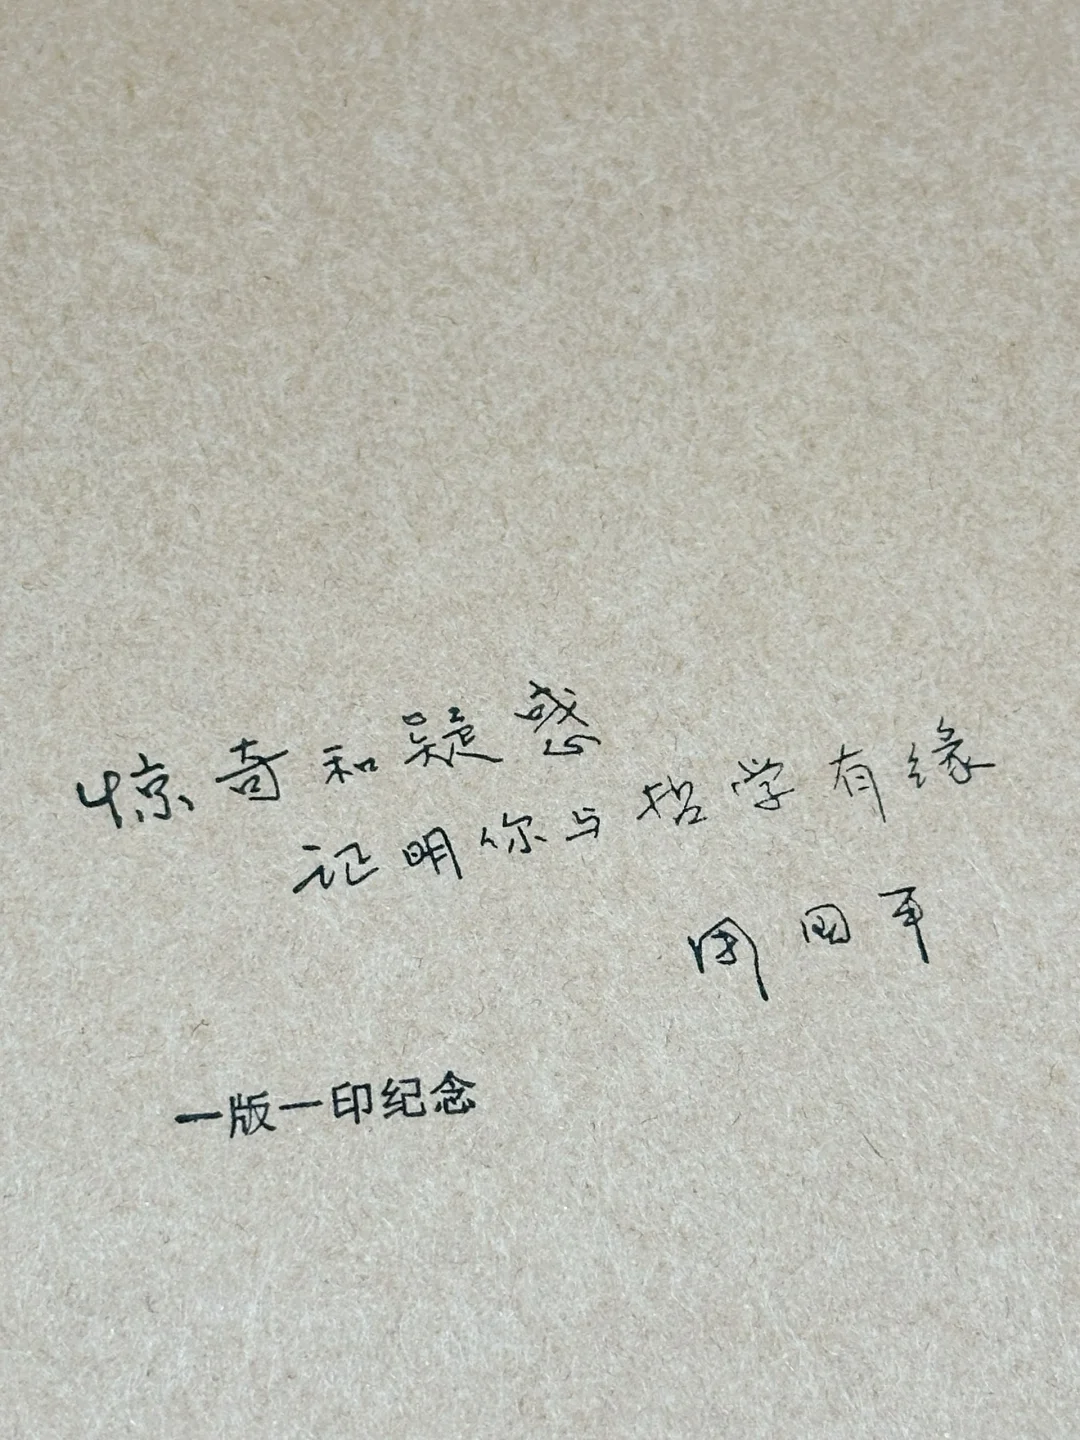 惊奇和疑惑
证明你与哲学有缘
周国平
一版一印纪念